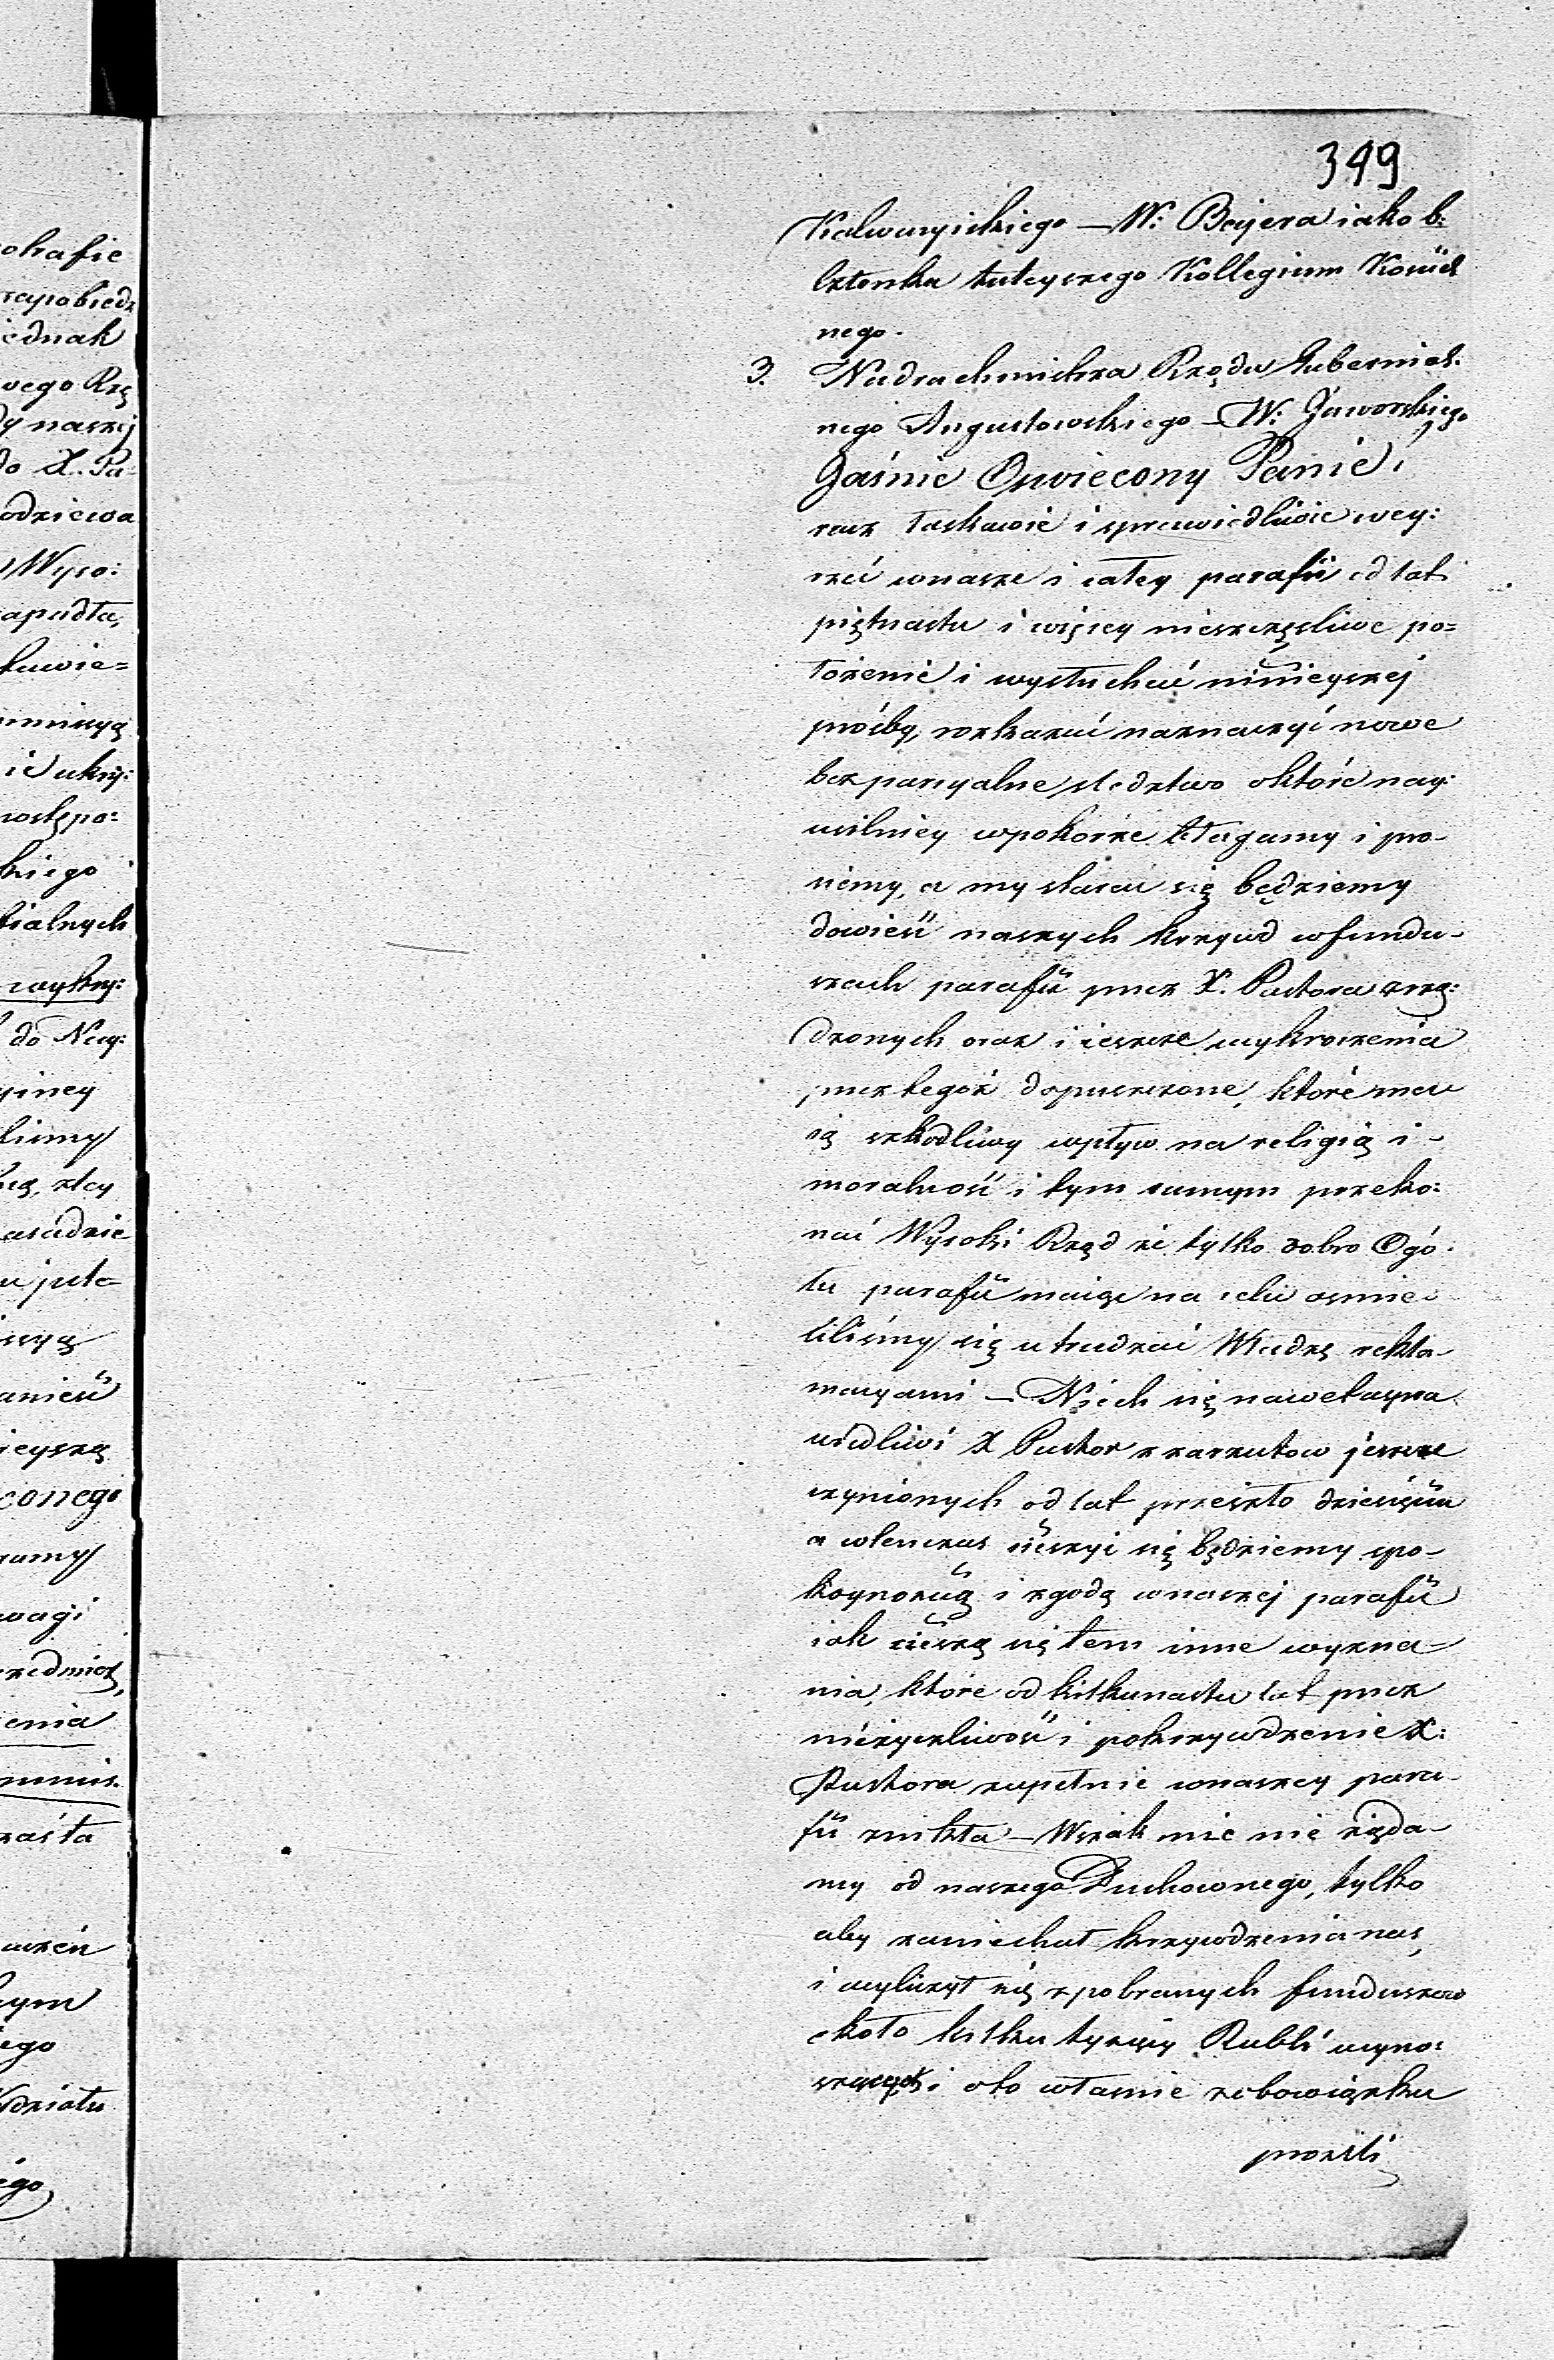 349
Kalwaryiskiego — W: Beyera iako b:
Członka tuteyszego Kollegium Kościel
nego.
3. Nadrachmistrza Rządu Gubernial:
nego Augustowskiego — W: Jaworskiego
Jaśnie Oswiecony Panie!
racz łaskawie i sprawiedliwie wey:
rzeć wnasze i całey parafii od lat
piętnastu i więcy nieszczęsliwe po=
łożenie i wysłuchać ninieyszej
prośby, rozkazać naznaczyć nowe
bezparcyalne sledztwo októre nay:
usilniey wpokorze błagamy i pro-
siemy, a my starać się będziemy
dowieść naszych krzywd wfundu-
szach parafii przez X. Pastora zrzą:
dzonych oraz i ieszcze wykroczenia
przez tegóż dopuszczone, które ma
ią szkodliwy wpływ na religią i-
moralność i tym samym przeko:
nać Wysoki Rząd że tylko dobro Ogó-
łu parafii maiąc na celu osmie-
liliśmy się utrudzać Władzę rekla-
macyami — Niech się nawet uspra
wiedliwi X Pastor z zarzutow jeszcze
czynionych od lat przeszło dziesięciu
a wtenczas cieszyć się będziemy spo-
koynością i zgodą wnaszej parafii
iak cieszą się tem inne wyzna=
nia, które od kilkunastu lat przez
niéżyczliwość i pokrzywdzenie X:
Pastora zupełnie wnaszey para-
fii znikła — Wszak nic nie żąda-
my od naszego Duchownego, tylko
aby zaniechał krzywdzenia nas,
i wyliczył się zpobranych funduszow
około kilku tysięcy Rubli wyno:
szących i oto własnie zobowiązku
prosili
ohafie
zapobiedz
iednak
wego Rzą
dy naszej
do X. Pa-
odziewa
Wyso:
zapadła,
ie ukry:
kiego
wykry:
do Nay:
liśmy
złey
ieyszą
conego
wagi
enia
ego